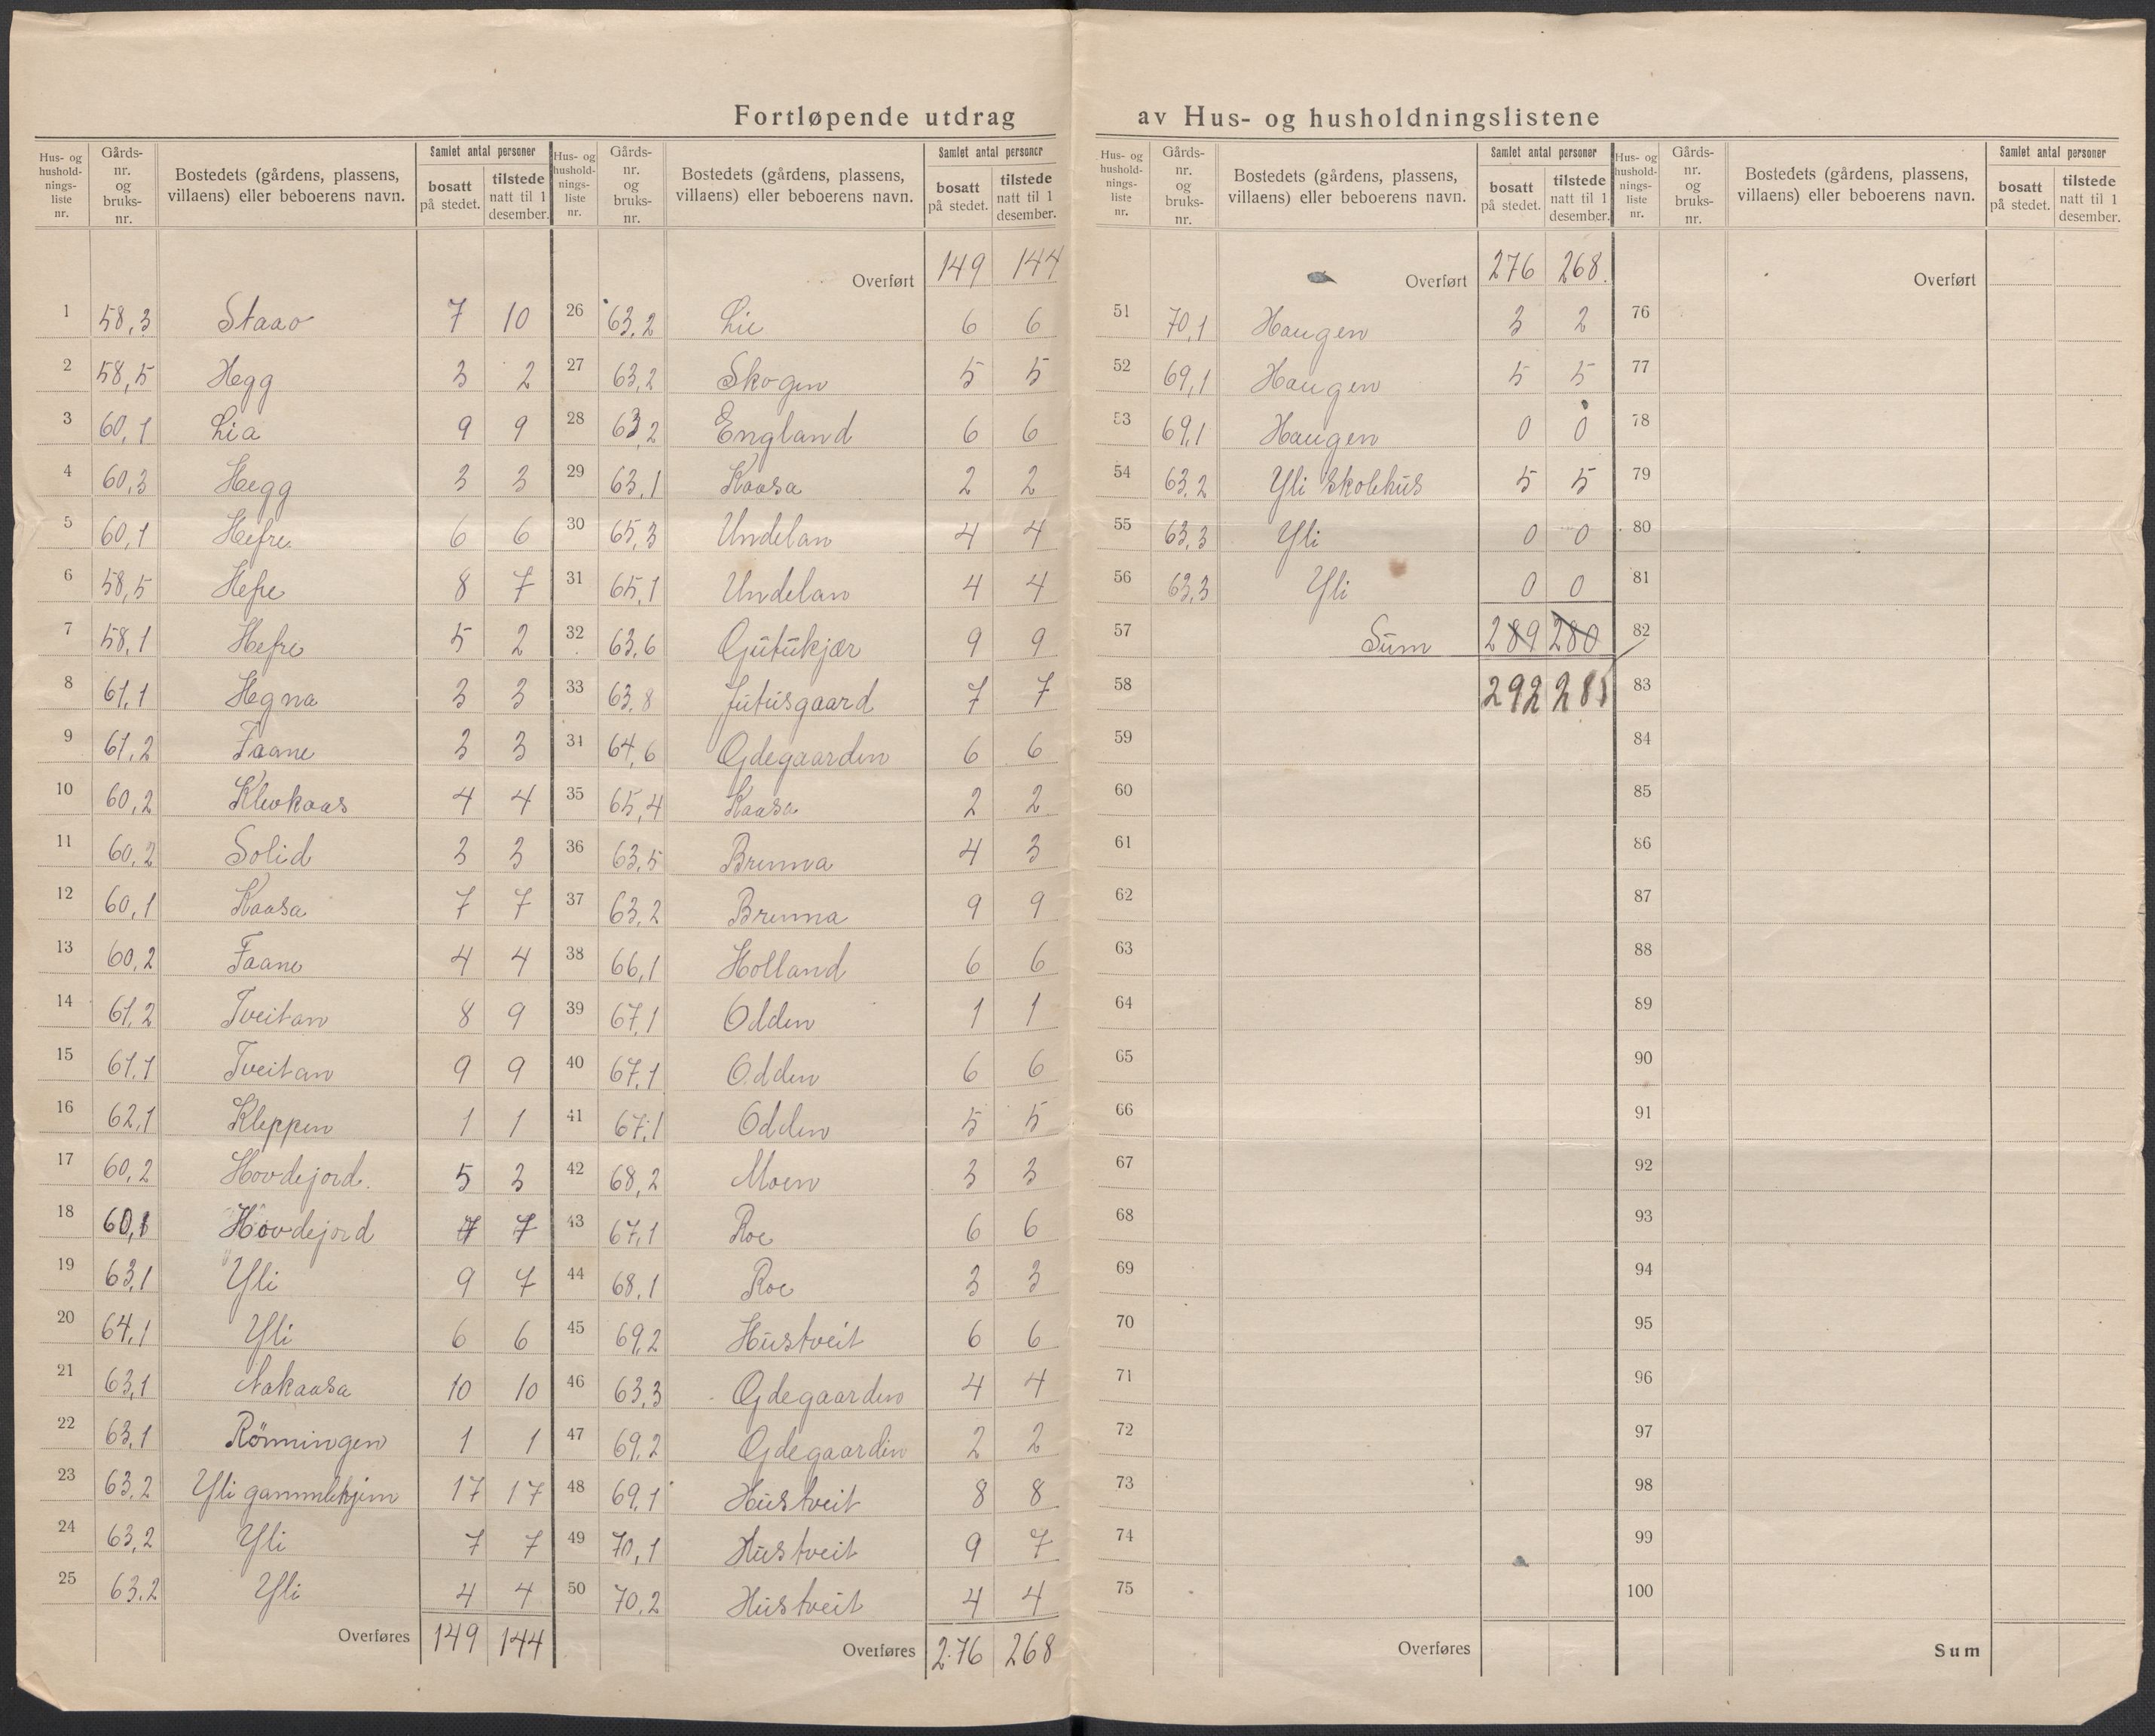 Fortløpende utdrag av Hus- og husholdningslistene
Hus- og hushold- nings- liste nr. | Gårds- nr. og bruks- nr. | Bostedets (gårdens, plassens, villaens) eller beboerens navn. | Samlet antal personer | bosatt på stedet. | tilstede natt til 1 desember.
1 58,3 Staao 7 10
2 58,5 Hegg 3 2
3 60,1 Lia 9 9
4 60,3 Hegg 3 3
5 60,1 Hefre 6 6
6 58,5 Hefre 8 7
7 58,1 Hefre 5 2
8 61,1 Hegna 3 3
9 61,2 Faane 3 3
10 60,2 Klevkaas 4 4
11 60,2 Solid 3 3
12 60,1 Kaasa 7 7
13 60,2 Faane 4 4
14 61,2 Tveitan 8 9
15 61,1 Tveitan 9 9
16 62,1 Kleppen 1 1
17 60,2 Hovdejord. 5 3
18 60,1 Hovdejord 7 7
19 63,1 Yli 9 7
20 64,1 Yli 6 6
21 63,1 Nakaasa 10 10
22 63,1 Rönningen 1 1
23 63,2 Yli gammlehjem 17 17
24 63,2 Yli 7 7
25 63,2 Yli 4 4
Overføres 149 144
Hus- og hushold- nings- liste nr. | Gårds- nr. og bruks- nr. | Bostedets (gårdens, plassens, villaens) eller beboerens navn. | Samlet antal personer | bosatt på stedet. | tilstede natt til 1 desember.
Overført 149 144
26 63,2 Lie 6 6
27 63,2 Skogen 5 5
28 63,2 England 6 6
29 63,1 Kaasa 2 2
30 65,3 Undelan 4 4
31 65,1 Undelan 4 4
32 63,6 Gutukjær 9 9
33 63,8 Jutusgaard 7 7
34 64,6 Ødegaarden 6 6
35 65,4 Kaasa 2 2
36 63,5 Brenna 4 3
37 63,2 Brenna 9 9
38 66,1 Holland 6 6
39 67,1 Odden 1 1
40 67,1 Odden 6 6
41 67,1 Odden 5 5
42 68,2 Moen 3 3
43 67,1 Roe 6 6
44 68,1 Roe 3 3
45 69,2 Hustveit 6 6
46 63,3 Ødegaarden 4 4
47 69,2 Ødegaarden 2 2
48 69,1 Hustveit 8 8
49 70,1 Hustveit 9 7
50 70,2 Hustveit 4 4
Overføres 276 268
Hus- og hushold- nings- liste nr. | Gårds- nr. og bruks- nr. | Bostedets (gårdens, plassens, villaens) eller beboerens navn. | Samlet antal personer | bosatt på stedet. | tilstede natt til 1 desember.
Overført 276 268.
51 70,1 Haugen 3 2
52 69,1 Haugen 5 5
53 69,1 Haugen 0 0
54 63,2 Yli Skolehus 5 5
55 63,3 Yli 0 0
56 63,3 Yli 0 0
57 Sum 289 280
58 292 285
59
60
61
62
63
64
65
66
67
68
69
70
71
72
73
74
75
Overføres
Hus- og hushold- nings- liste nr. | Gårds- nr. og bruks- nr. | Bostedets (gårdens, plassens, villaens) eller beboerens navn. | Samlet antal personer | bosatt på stedet. | tilstede natt til 1 desember.
Overført
76
77
78
79
80
81
82
83
84
85
86
87
88
89
90
91
92
93
94
95
96
97
98
99
100
Sum